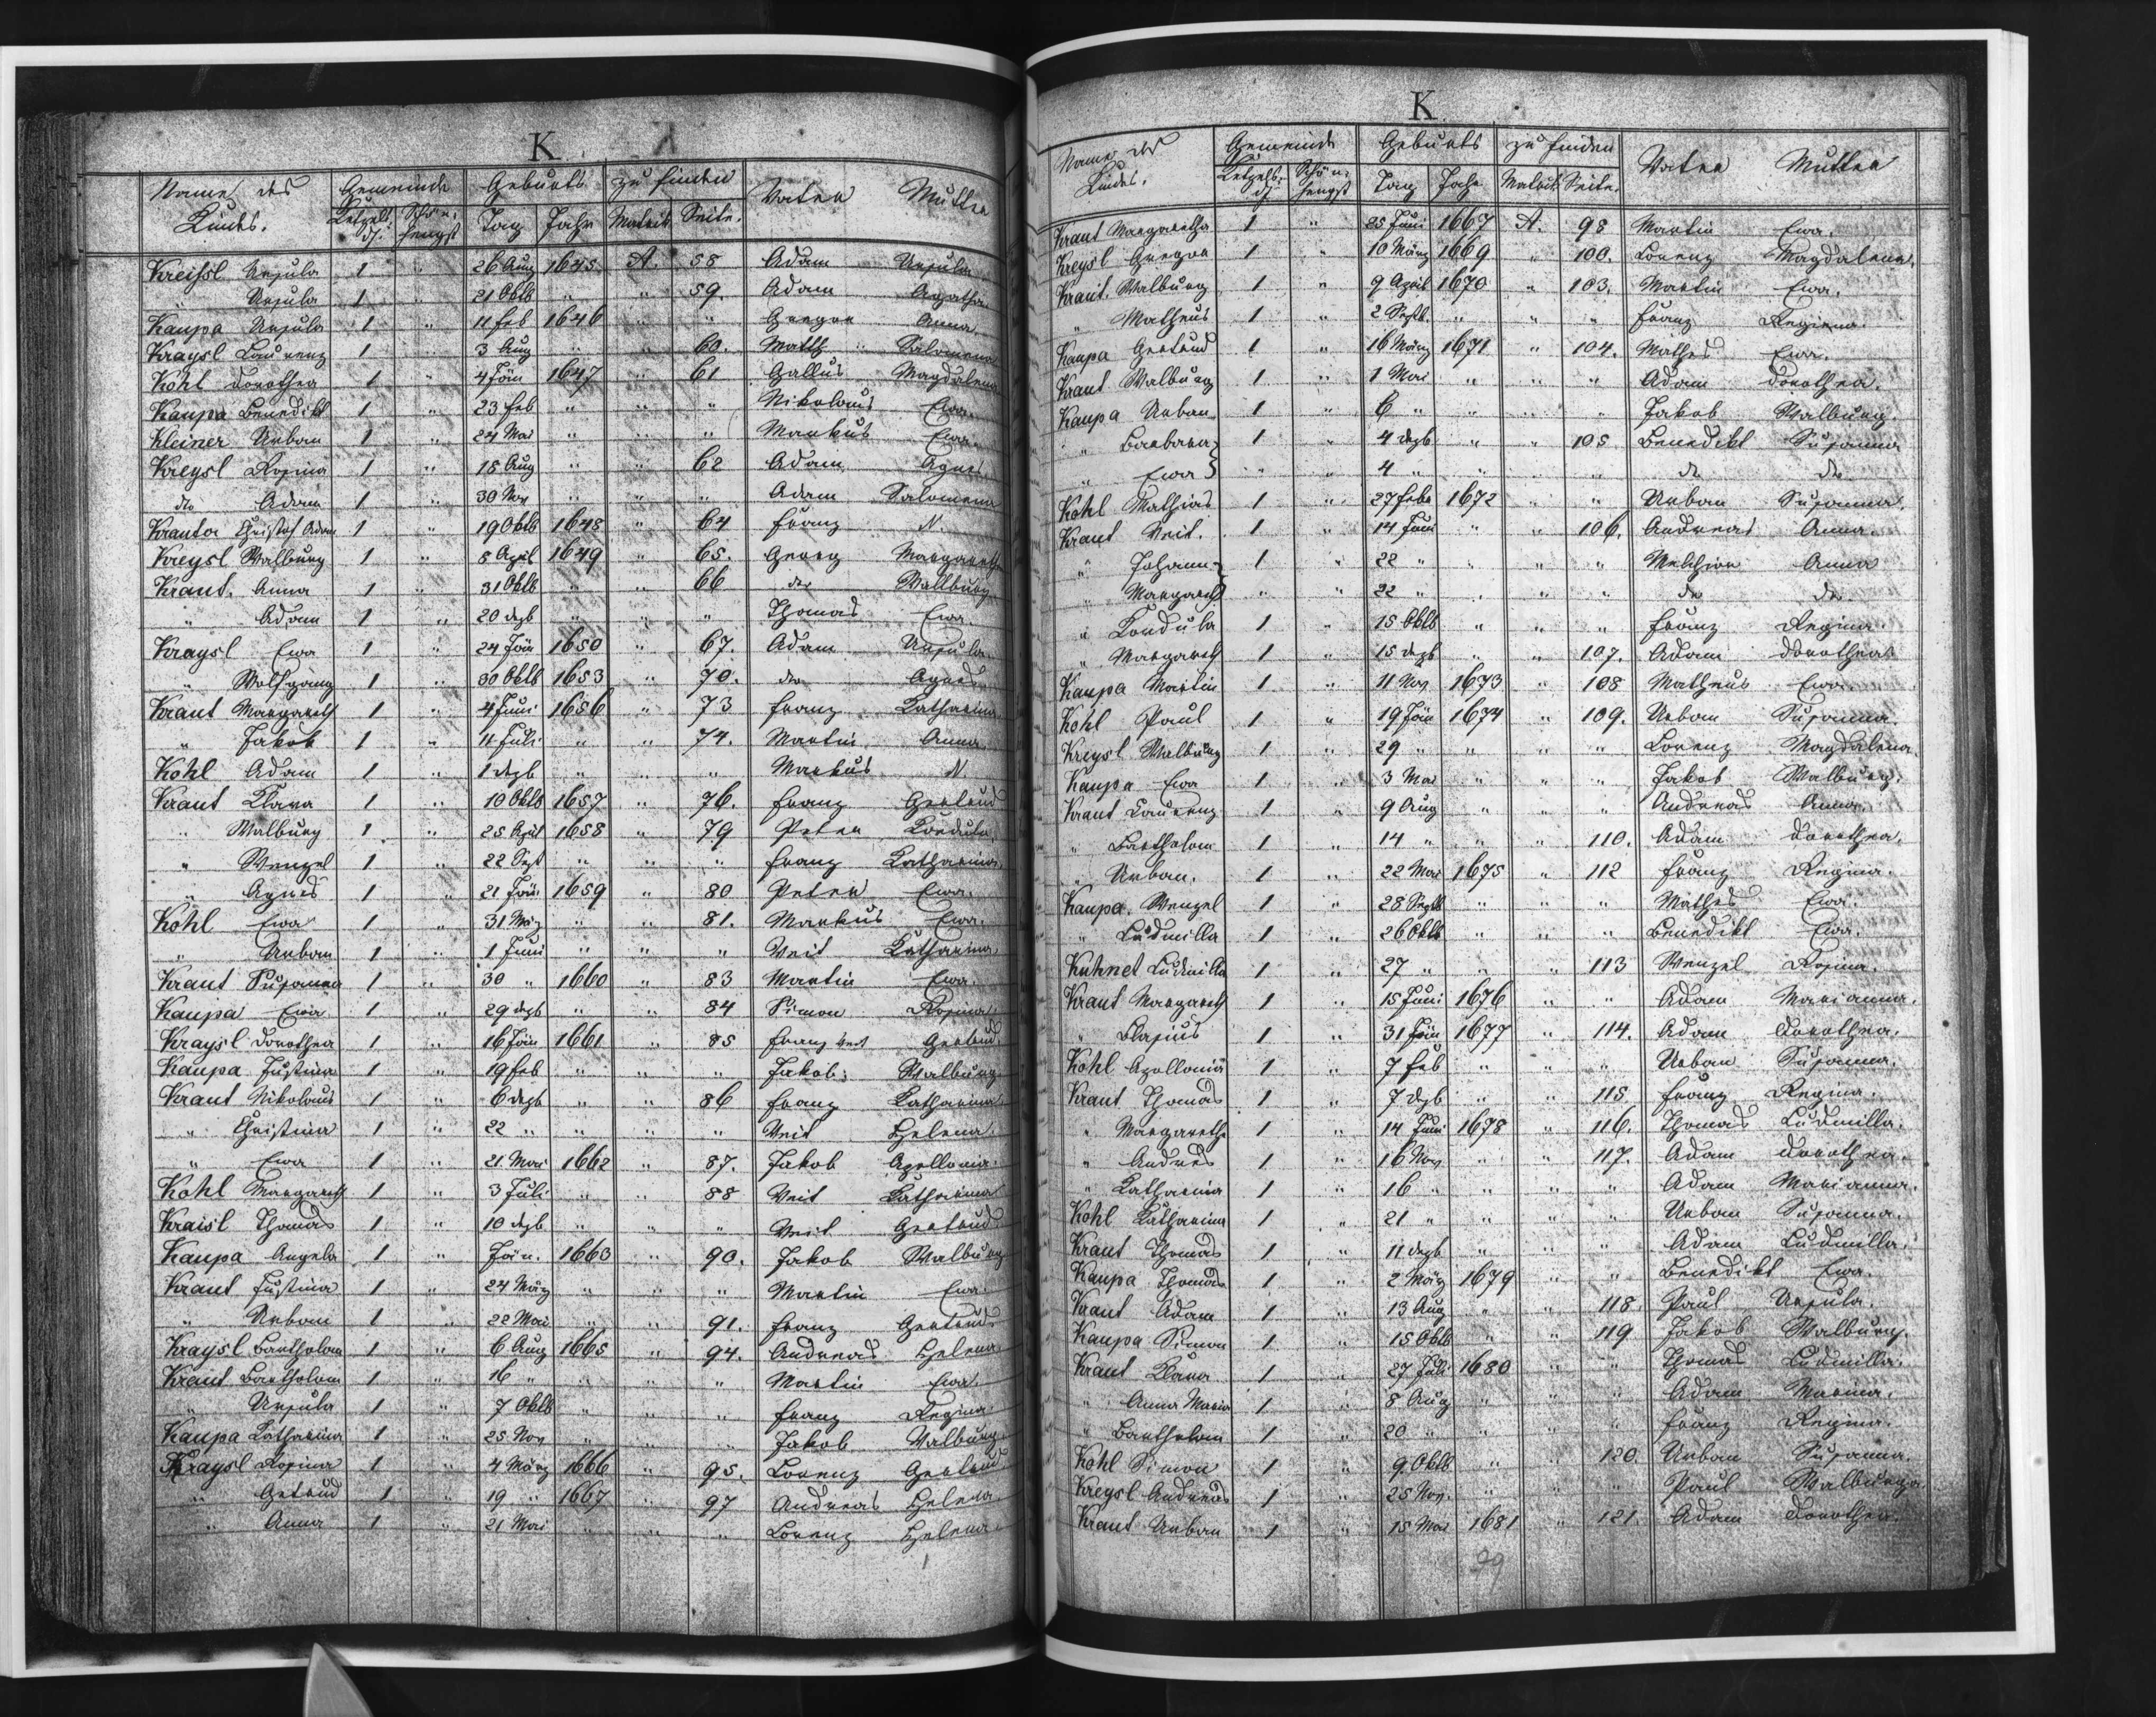 K
Name des Kindes. Gemeinde Geburts zu finden Vater Mutter
Ketzelsdf. Schönhengst Tag Jahr Matrik Seite.
Kreißl Ursula 1 " 26 Aug 1645 A. 58 Adam Ursula
" Ursula 1 " 21 Oktb " " 59. Adam Agatha
Kaupa Ursula 1 " 11 Feb 1646 " " Gregor Anna
Kraysl Laurenz 1 " 3 Aug " " 60. Matth Salomena
Kohl Dorothea 1 " 4 Jän 1647 " 61 Gallus Magdalena
Kaupa Benedikt 1 " 23 Feb " " " Nikolaus Ewa.
Kleiner Urban 1 " 24 Mai " " " Markus Ewa.
Kreysl Rosina 1 " 18 Aug " " 62 Adam Agnes
dto Adam 1 " 30 Nov " " " Adam Salomena
Krauta Christof Adam 1 " 19 Oktb 1648 " 64 Franz N.
Kreysl Walburg 1 " 8 April 1649 " 65. Georg Margareth
Kraut. Anna 1 " 31 Oktb " " 66 dto Wallburg
" Adam 1 " 20 Dezb " " " Thomas Ewa.
Kraysl Ewa 1 " 24 Jän 1650 " 67. Adam Ursula
" Wolfgang 1 " 30 Oktb 1653 " 70. dto Agnes
Kraut Margareth 1 " 4 Juni 1656 " 73 Franz Katharina
" Jakob 1 " 11 Juli " " 74. Martin Anna
Kohl Adam 1 " 1 Dezb " " " Markus N
Kraut Klara 1 " 10 Oktb 1657 " 76. Franz Gertrud
" Walburg 1 " 25 April 1658 " 79 Peter Kordula
" Wenzel 1 " 22 Sept " " " Franz Katharina
" Agnes 1 " 21 Jän 1659 " 80 Peter Ewa.
Kohl Ewa 1 " 31 Mäz " " 81. Markus Ewa.
" Urban 1 " 1 Juni " " " Veit Katharina
Kraut Susanna 1 " 30 " 1660 " 83 Martin Ewa.
Kaupa Ewa 1 " 29 Dezb " " 84 Simon Rosina
Kraysl Dorothea 1 " 16 Jän 1661 " 85 Franz Veit Gertrud
Kaupa Justina 1 " 19 Feb " " " Jakob Walburg
Kraut Nikolaus 1 " 6 Dezb " " 86 Franz Katharina
" Christina 1 " 22 " " " " Veit Helena
" Ewa 1 " 21 Mai 1662 " 87. Jakob Apollonia
Kohl Margareth 1 " 3 Juli " " 88 Veit Katharina
Kraisl Thomas 1 " 10 Dezb " " " Veit Gertrud
Kaupa Angela 1 " Jän. 1663 " 90. Jakob Walburg
Kraut Justina 1 " 24 März " " " Martin Ewa.
" Urban 1 " 22 Mai " " 91. Franz Gertrud
Kraysl Bartholom 1 " 6 Aug 1665 " 94. Andreas Helena
Kraut Bartholom 1 " 16 " " " " Martin Ewa.
" Ursula 1 " 7 Oktb " " " Franz Regina
Kaupa Katharina 1 " 25 Nov " " " Jakob Walburg
Kraysl Rosina 1 " 4 März 1666 " 95. Lorenz Gertrud
" Getrud 1 " 19 " 1667 " 97 Andreas Helena
" Anna 1 " 21 Mai " " " Lorenz Helena
K.
Name des Kindes. Gemeinde Geburts zu finden Vater Mutter
Ketzelsdf. Schönhengst Tag Jahr Matrik Seite.
Kraut Margaretha 1 " 25 Juni 1667 A. 98 Martin Ewa.
Kreysl Gregor 1 " 10 März 1669 " 100. Lorenz Magdalena
Kraut. Walburg 1 " 9 April 1670 " 103. Martin Ewa.
" Matheus 1 " 2 Septb. " " " Franz Regina
Kaupa Gertrud 1 " 16 März 1671 " 104. Mathes Ewa.
Kraut Walburg 1 " 1 Mai " " " Adam Dorothea.
Kaupa Urban 1 " 6 " " " " Jakob Walburg.
" Barbara } 1 " 4 Dezb " " 105 Benedikt Susanna
" Ewa } " " 4 " " " " dto dto
Kohl Mathias 1 " 27 Febr 1672 " " Urban Susanna
Kraut Veit. 1 " 14 Juni " " 106. Andreas Anna.
" Johann } 1 " 22 " " " " Melchior Anna
" Margareth } " " 22 " " " " dto dto
" Kordula 1 " 15 Oktb " " " Franz Regina
" Margareth 1 " 15 Dezb " " 107. Adam Dorothea
Kaupa Martin 1 " 11 Nov 1673 " 108 Matheus Ewa
Kohl Paul 1 " 19 Jän 1674 " 109. Urban Susanna.
Kreysl Walburg 1 " 29 " " " " Lorenz Magdalena.
Kaupa Ewa 1 " 3 Mai " " " Jakob Walburg.
Kraut Laurenz 1 " 9 Aug " " " Andreas Anna.
" Bartholom 1 " 14 " " " 110. Adam Dorothea.
" Urban. 1 " 22 Mai 1675 " 112 Franz Regina.
Kaupa. Wenzel 1 " 28 Septb " " " Mathes Ewa.
" Ludmilla 1 " 26 Oktb " " " Benedikt Ewa.
Kuhnet Ludmilla 1 " 27 " " " 113 Wenzel Rosina.
Kraut Margareth 1 " 15 Juni 1676 " " Adam Marianna.
" Blasius 1 " 31 Jän 1677 " 114. Adam Dorothea.
Kohl Apollonia 1 " 7 Feb " " " Urban Susanna.
Kraut Thomas 1 " 7 Dezb " " 115. Franz Regina.
" Margareth 1 " 14 Juni 1678 " 116. Thomas Ludmilla.
" Andreas 1 " 16 Nov " " 117. Adam Dorothea.
" Katharina 1 " 16 " " " " Adam Marianna.
Kohl Katharina 1 " 21 " " " " Urban Susanna.
Kraut Thomas 1 " 11 Dezb " " " Adam Ludmilla.
Kaupa Thomas 1 " 2 März 1679 " " Benedikt Ewa.
Kraut Adam 1 " 13 Aug " " 118. Paul Ursula.
Kaupa Simon 1 " 15 Oktb " " 119. Jakob Walburg.
Kraut Klara 1 " 27 Juli 1680 " " Thomas Ludmilla.
" Anna Maria 1 " 8 Aug " " " Adam Marina.
" Bartholom 1 " 20 " " " " Franz Regina.
Kohl Simon 1 " 9. Oktb " " 120. Urban Susanna.
Kreysl Andreas 1 " 25 Nov. " " " Paul Walburga
Kraut Urban 1 " 15 Mai 1681 " 121. Adam Dorothea.
29